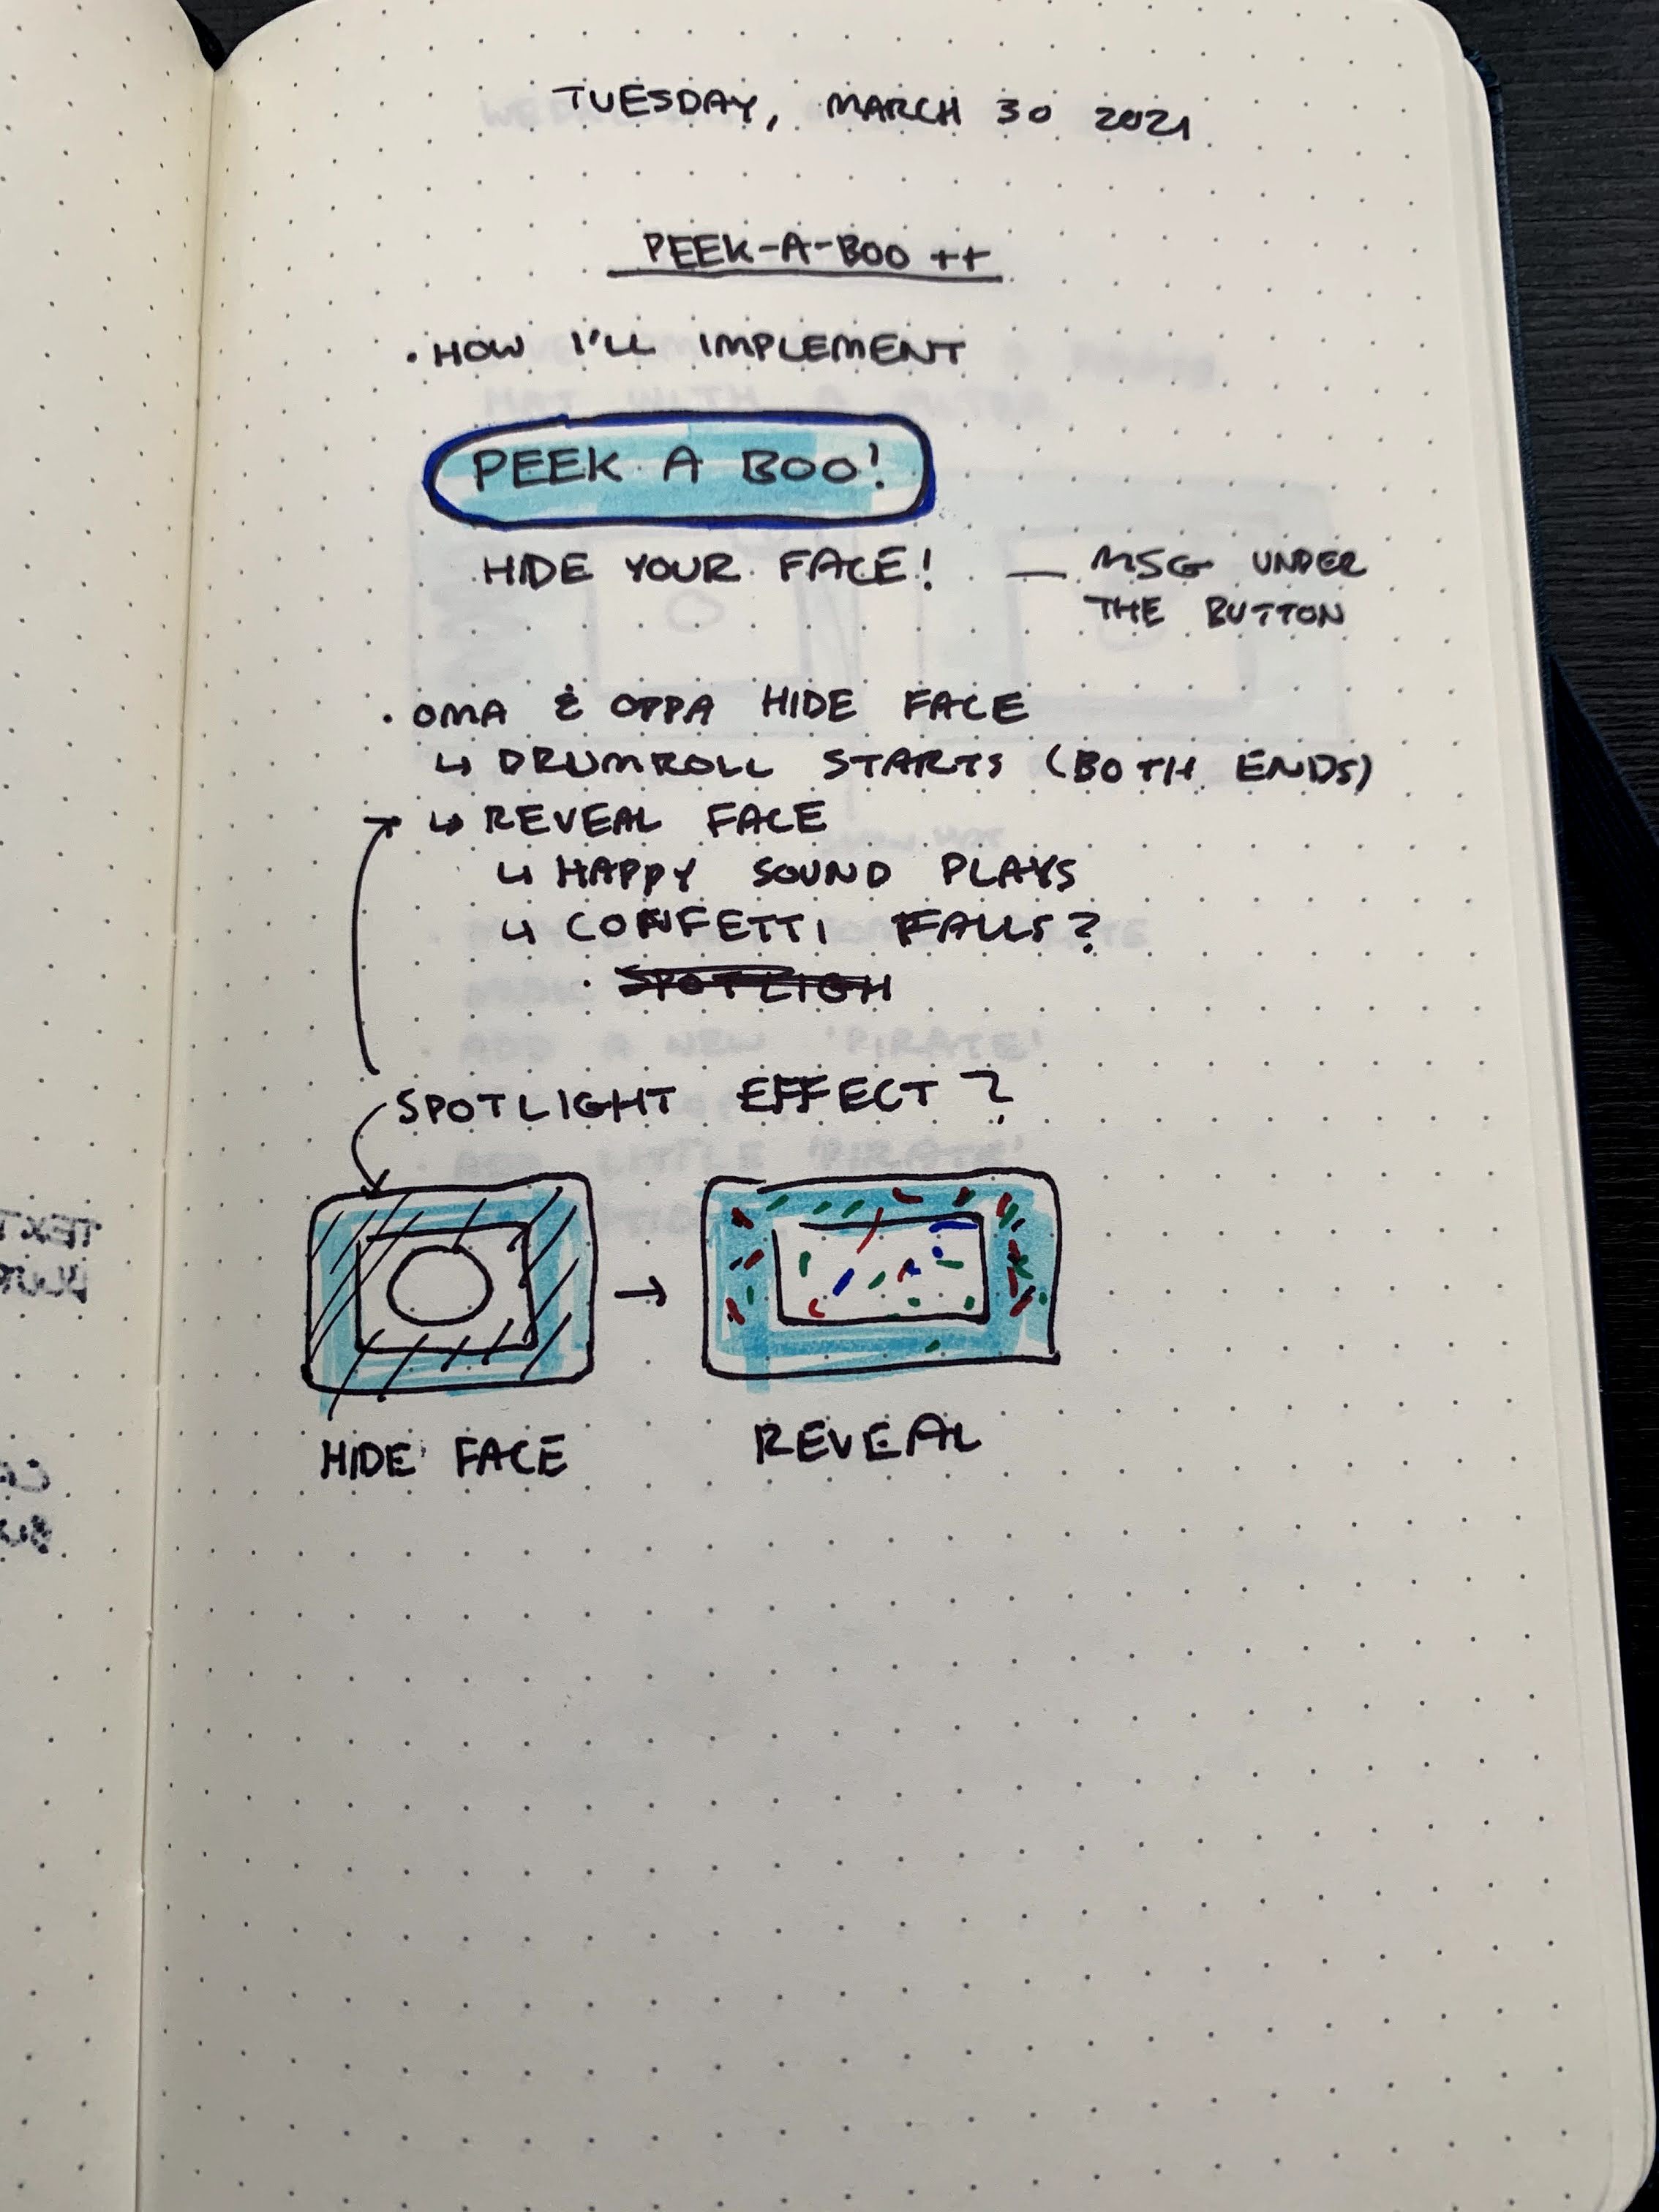 TUESDAY, MARCH 30 2021
PEEK-A-BOO ++
· HOW I'LL IMPLEMENT
PEEK A BOO!
HIDE YOUR FACE! — MSG UNDER
THE BUTTON
· OMA & OPPA HIDE FACE
↳ DRUMROLL STARTS (BOTH ENDS)
↳ REVEAL FACE
↳ HAPPY SOUND PLAYS
↳ CONFETTI FALLS?
· SPOTLIGH
SPOTLIGHT EFFECT?
HIDE FACE
REVEAL